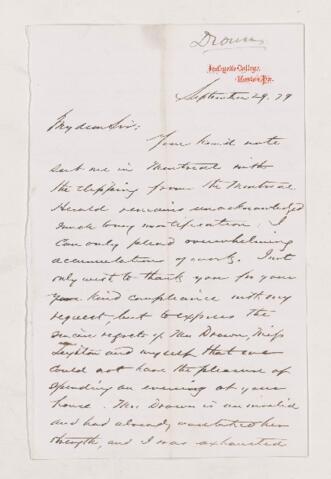 Drown
Lafayette College,
Easton, Pa.
September 29, 79
My dear Sir;
Your kind note
sent me in Montreal with
the clipping from the Montreal
Herald remains unacknowledged
much to my mortification. I
can only plead overwhelming
accumulations of work. I not
only wish to thank you for your
kind compliance with my
request, but to express the
sincere regret of Mrs Drown, Miss
and myself that we
could not have the pleasure of
spending an evening at your
house. Mrs. Drown is an invalid
and had already overtaxed her
strength, and I was exhausted